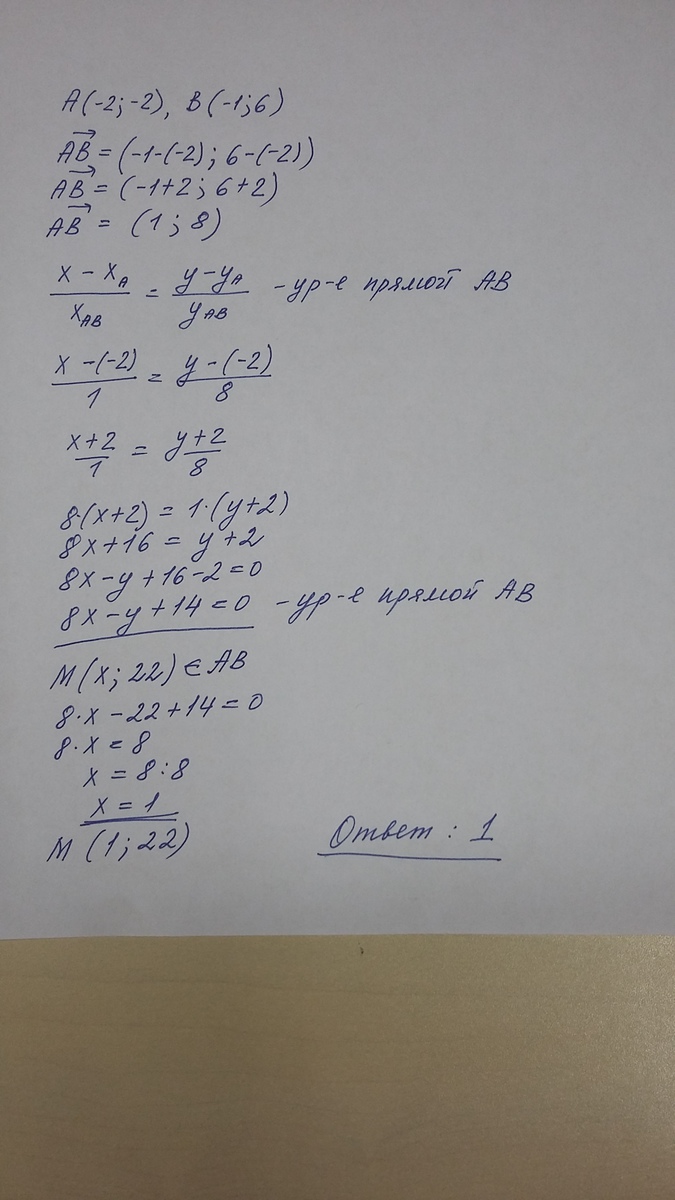 A(-2;-2), B(-1;6)
AB = (-1-(-2); 6-(-2))
AB = (-1+2; 6+2)
AB = (1; 8)
(x - x_A)/x_AB = (y - y_A)/y_AB - ур-е прямой AB
(x-(-2))/1 = (y-(-2))/8
(x+2)/1 = (y+2)/8
8·(x+2) = 1·(y+2)
8x+16 = y+2
8x-y+16-2=0
8x-y+14=0 - ур-е прямой AB
M(x; 22) ∈ AB
8·x-22+14=0
8·x = 8
x = 8:8
x = 1
M (1; 22)
Ответ: 1